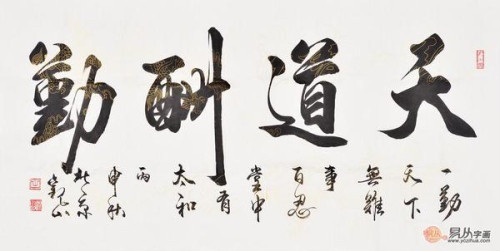 天道酬勤
一勤
天下
無難
事
百忍
堂中
有
太和
丙
申秋
京
易从字画
www.yczihua.com